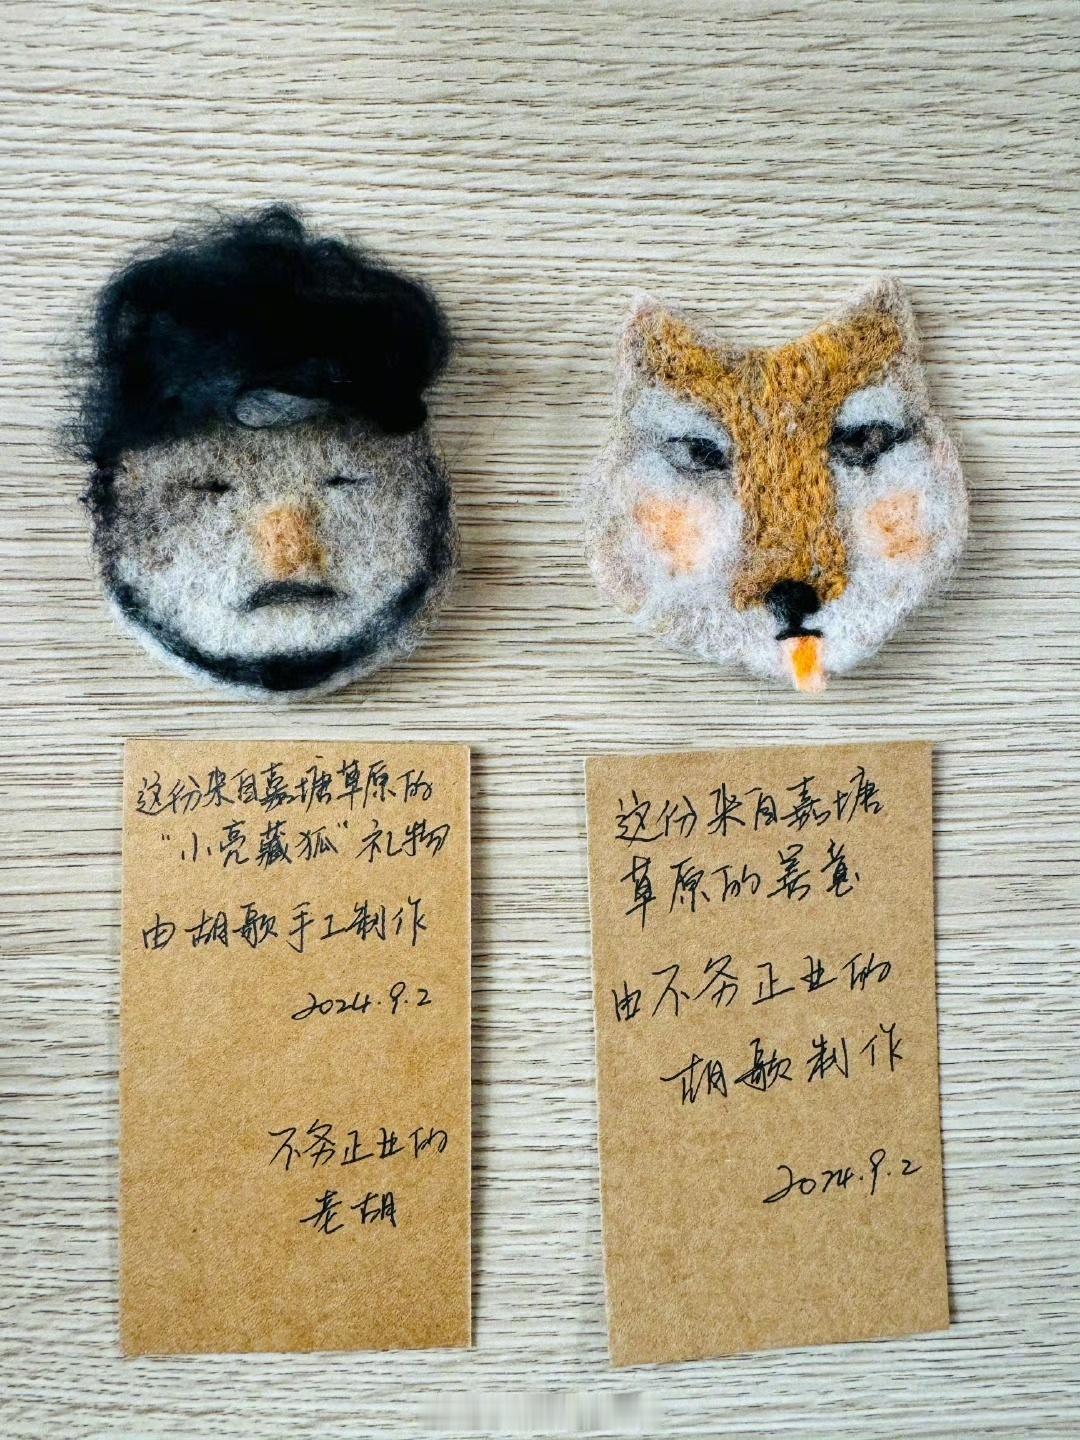 这份来自嘉塘草原的
“小亮藏狐”礼物
由胡歌手工制作
2024.9.2
不务正业的
老胡
这份来自嘉塘
草原的善意
由不务正业的
胡歌制作
2024.9.2